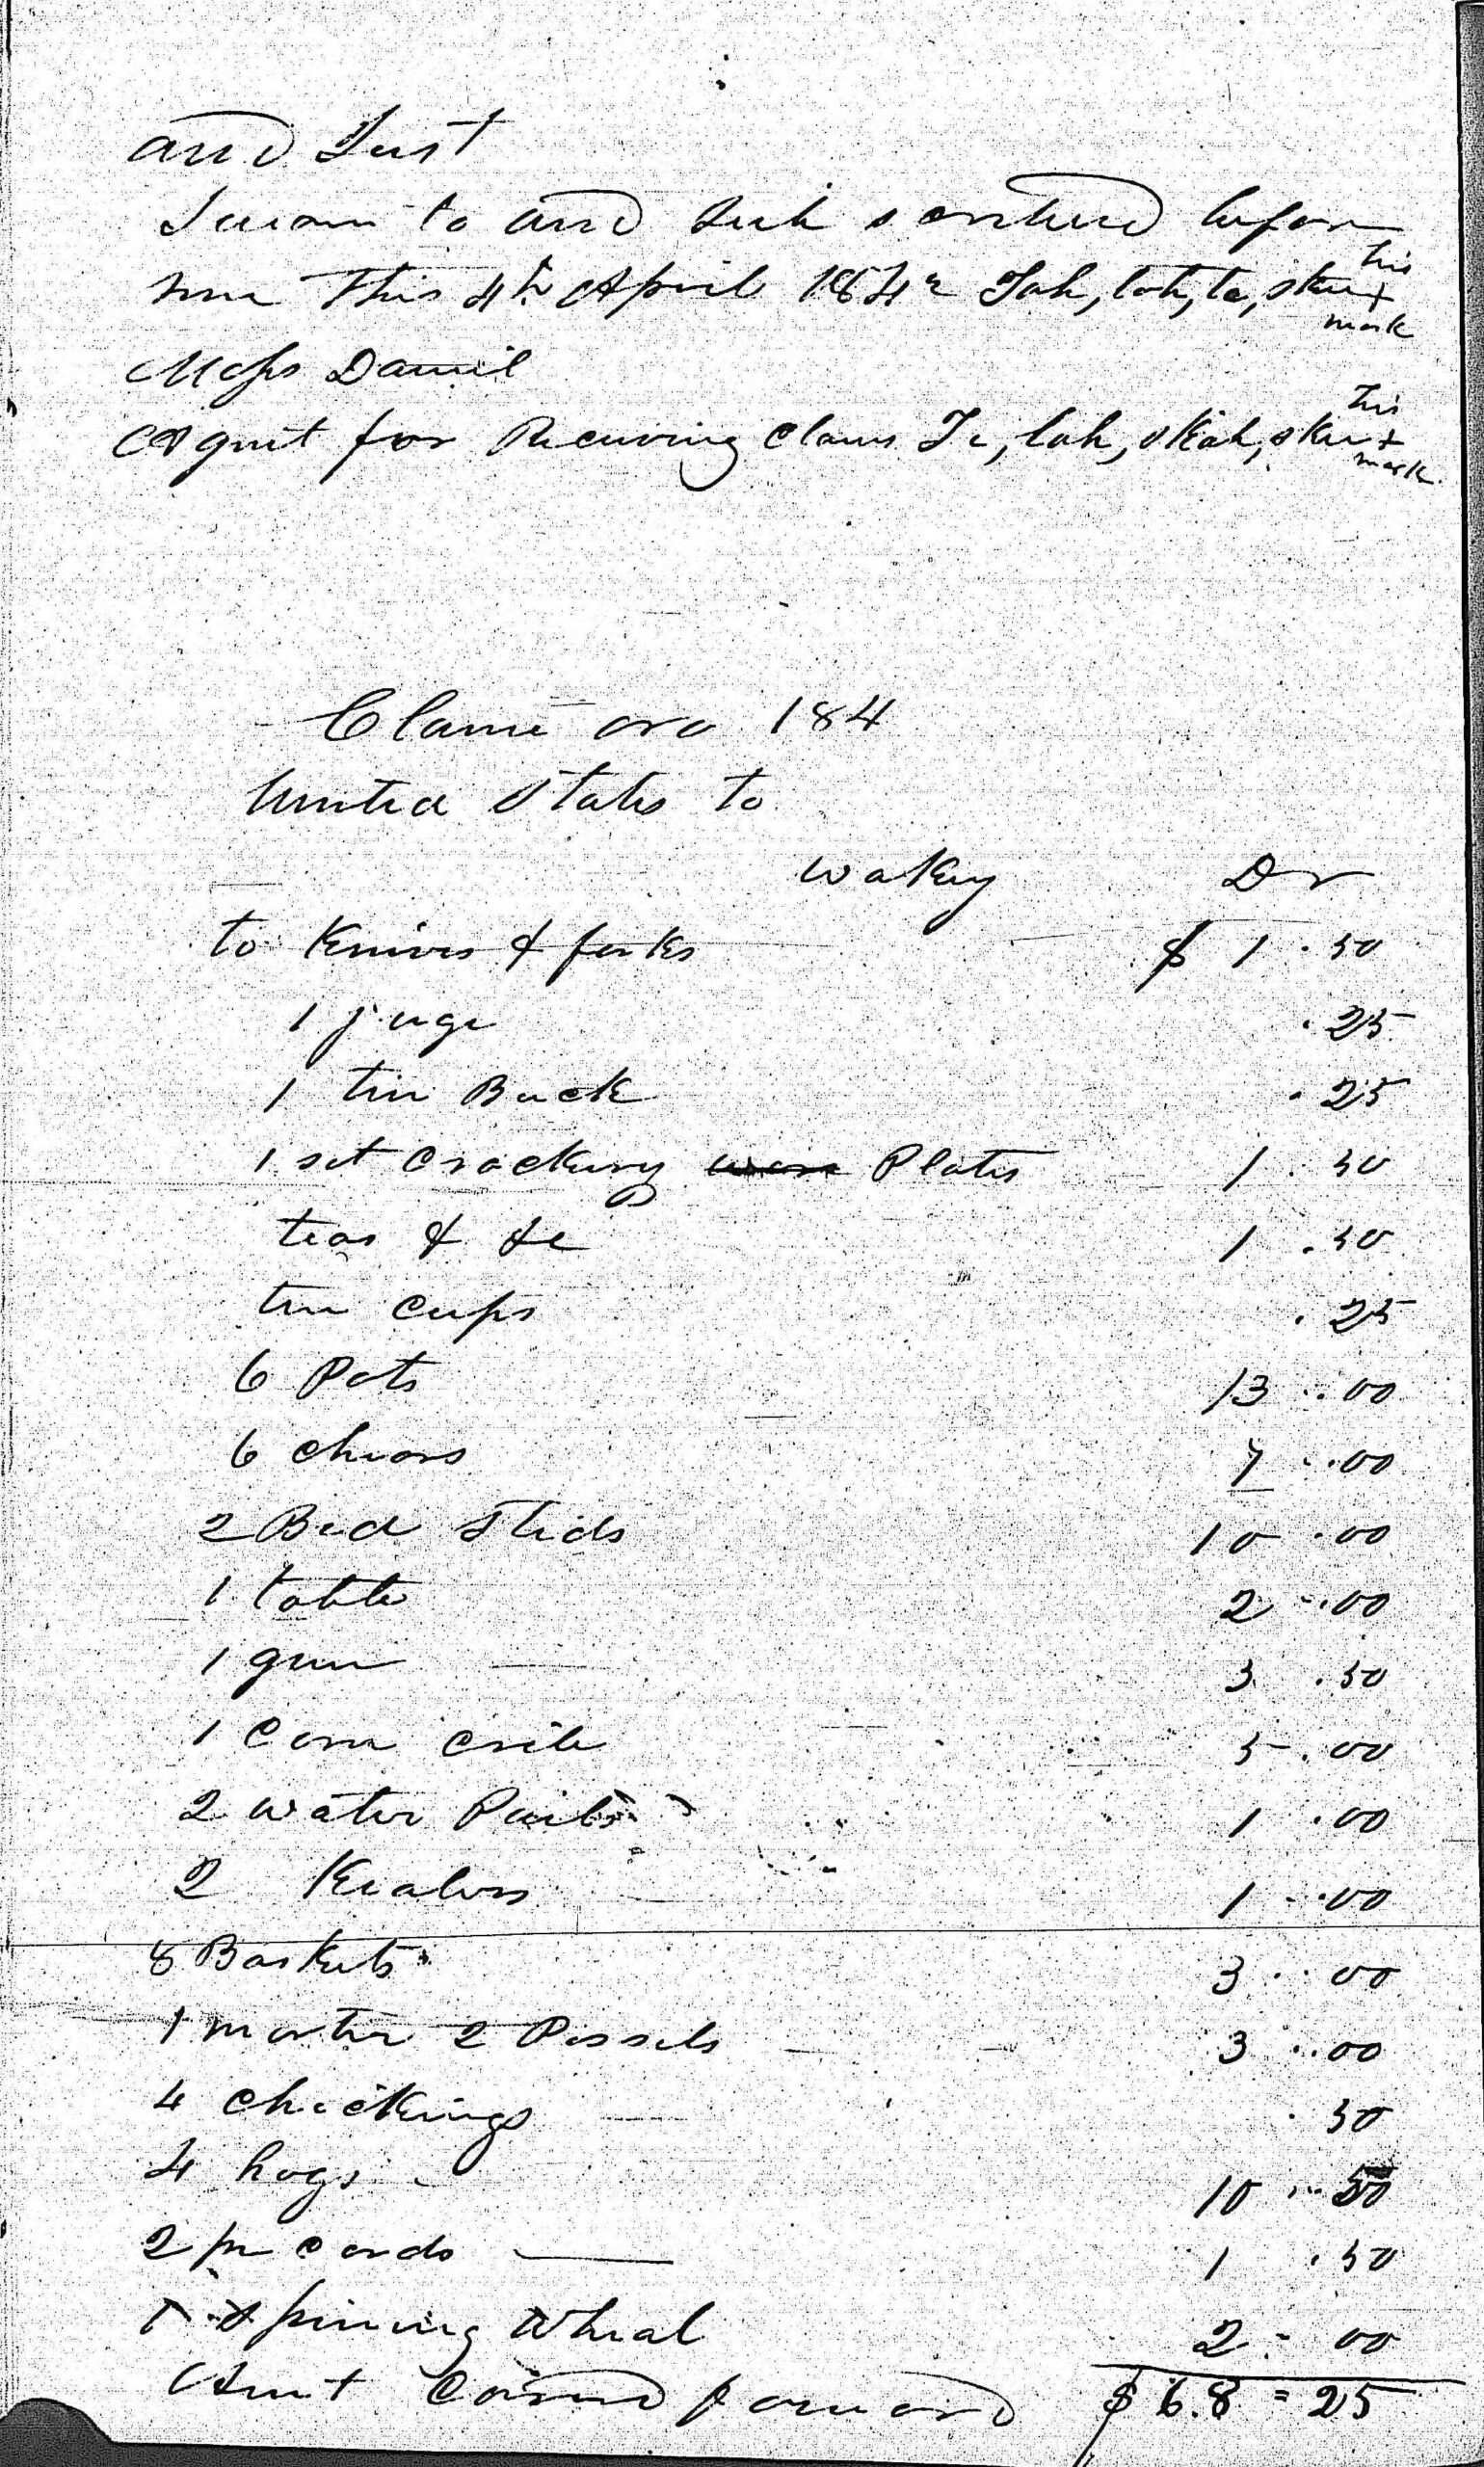 and Just
Sworn to and Sub scribed before
me This 4th April 1842 Tah, loh, te, skee his x mark
Moses Daniel
Agent for Receiving Claims Te, lah, skah, skee his x mark
Claim No 184
United States to
wakey Dr
to Knives & forks $ 1.50
1 juge .25
1 tin Buck .25
1 set Crockery Plates 1.50
teas & &c 1.50
tin Cups .25
6 Pots 13.00
6 Chears 7.00
2 Bed Steds 10.00
1 table 2.00
1 gun 3.50
1 Corn Crib 5.00
2 water Pails 1.00
2 Kealors 1.00
8 Baskets 3.00
1 morter 2 Pessels 3.00
4 Chickings .50
4 hogs 10.50
2 pr Cards 1.50
1 Spining Wheal 2.00
Amt Carried forward $ 68=25